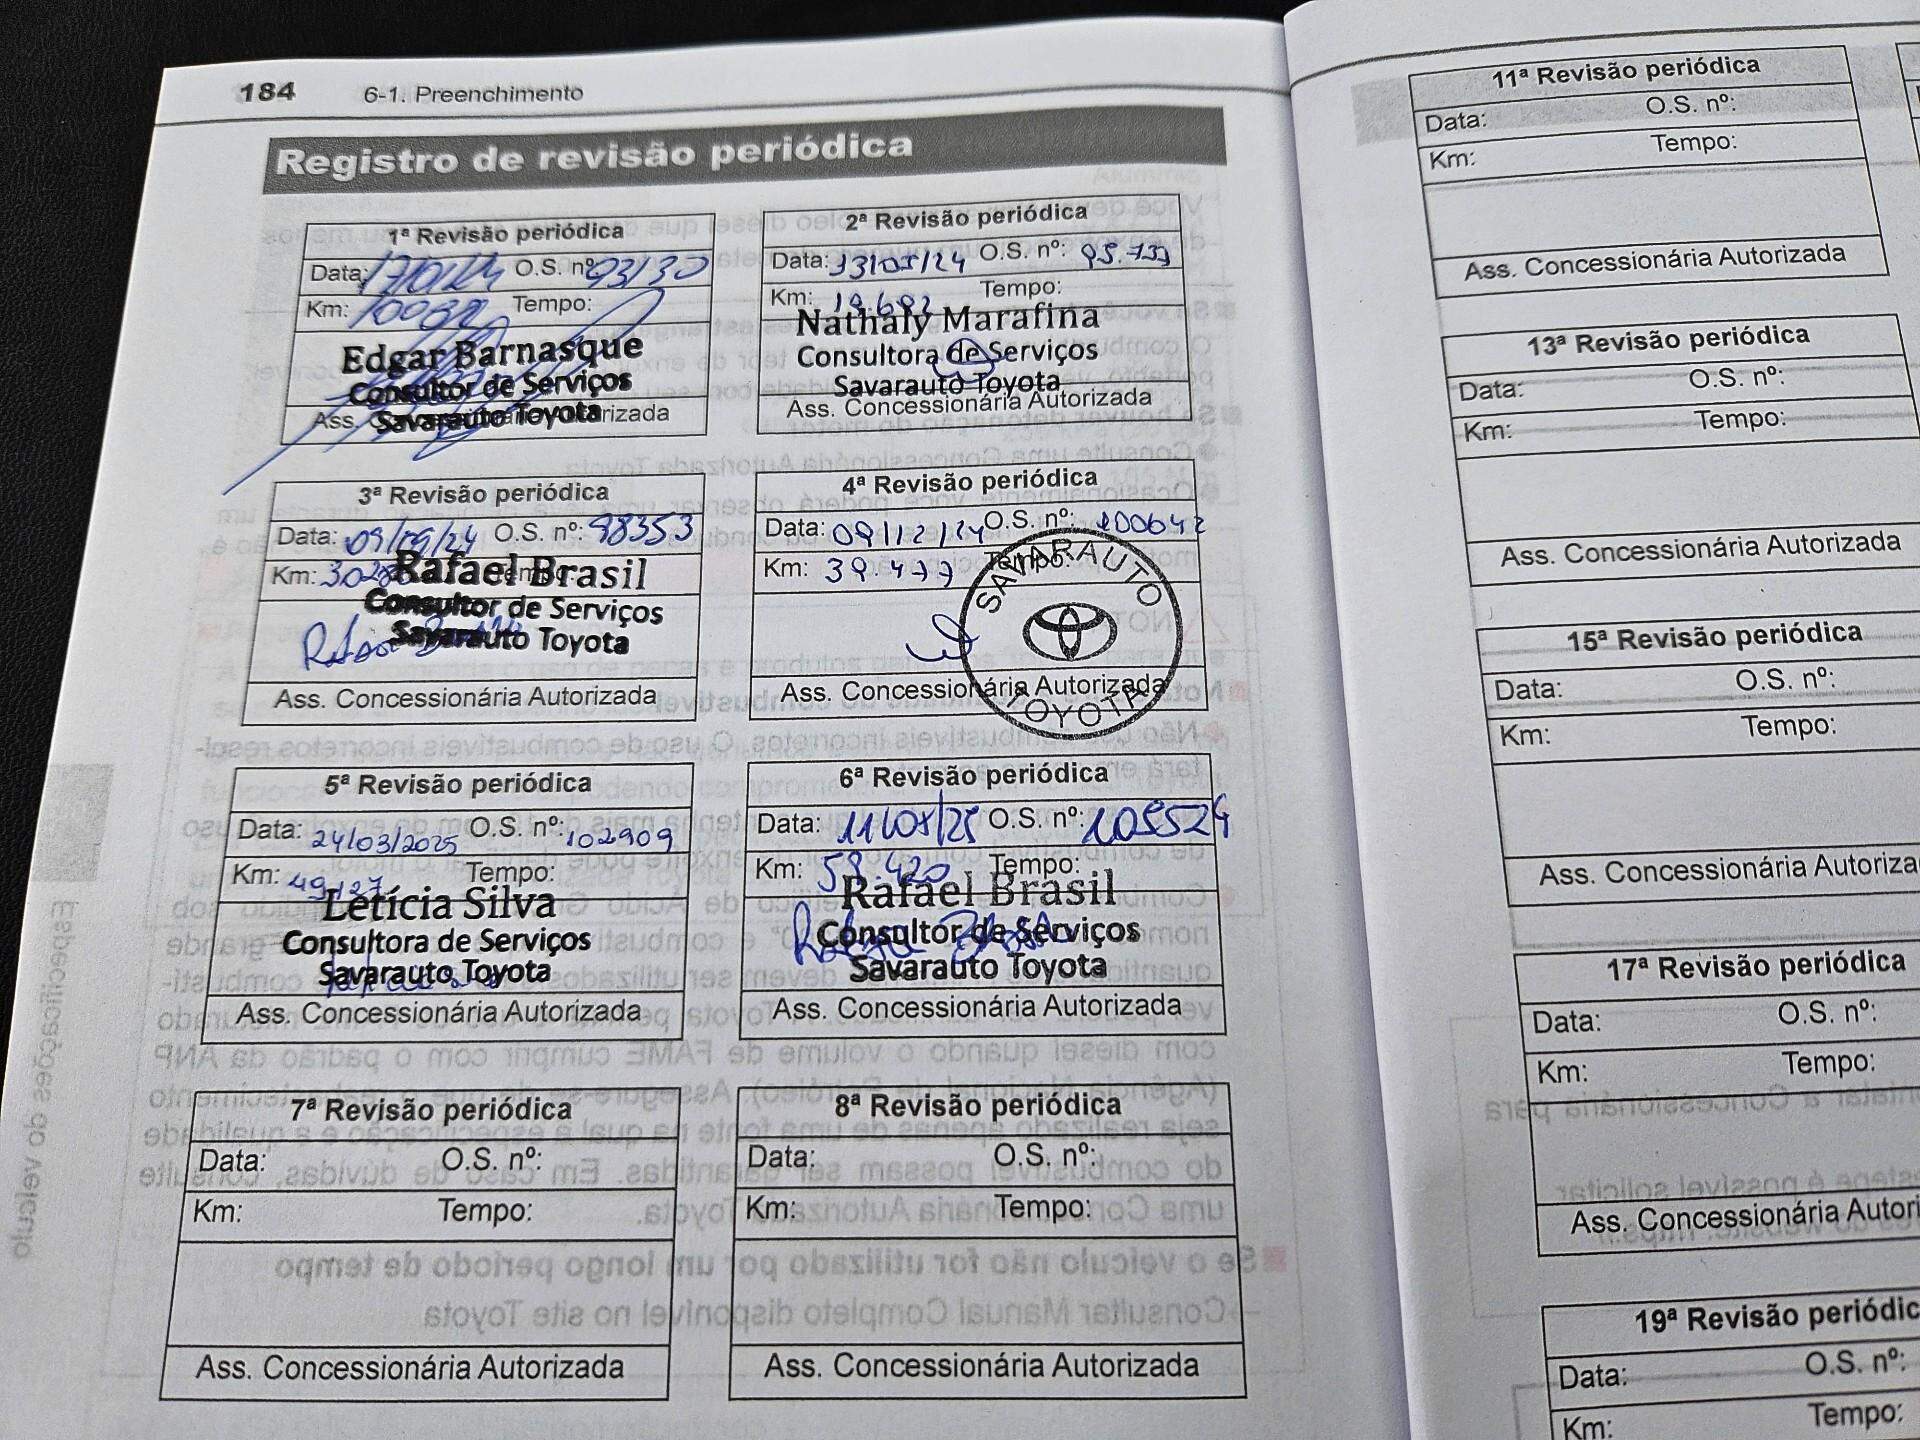 184 6-1. Preenchimento
Registro de revisão periódica
1ª Revisão periódica
Data: O.S. nº: 93130
Km: Tempo:
Edgar Barnasque
Consultor de Serviços
Savarauto Toyota
Ass. Concessionária Autorizada
2ª Revisão periódica
Data: 13/05/24 O.S. nº: 95.733
Km: 19.692 Tempo:
Nathaly Marafina
Consultora de Serviços
Savarauto Toyota
Ass. Concessionária Autorizada
3ª Revisão periódica
Data: 09/09/24 O.S. nº: 98353
Km: Tempo:
Rafael Brasil
Consultor de Serviços
Savarauto Toyota
Ass. Concessionária Autorizada
4ª Revisão periódica
Data: 09/12/24 O.S. nº: 100642
Km: 39.477 Tempo:
SAVARAUTO
TOYOTA
Ass. Concessionária Autorizada
5ª Revisão periódica
Data: 24/03/2025 O.S. nº: 102909
Km: Tempo:
Letícia Silva
Consultora de Serviços
Savarauto Toyota
Ass. Concessionária Autorizada
6ª Revisão periódica
Data: O.S. nº: 105524
Km: 59.420 Tempo:
Rafael Brasil
Consultor de Serviços
Savarauto Toyota
Ass. Concessionária Autorizada
7ª Revisão periódica
Data: O.S. nº:
Km: Tempo:
Ass. Concessionária Autorizada
8ª Revisão periódica
Data: O.S. nº:
Km: Tempo:
Ass. Concessionária Autorizada
Especificações do veículo
11ª Revisão periódica
Data: O.S. nº:
Km: Tempo:
Ass. Concessionária Autorizada
13ª Revisão periódica
Data: O.S. nº:
Km: Tempo:
Ass. Concessionária Autorizada
15ª Revisão periódica
Data: O.S. nº:
Km: Tempo:
Ass. Concessionária Autoriza
17ª Revisão periódica
Data: O.S. nº:
Km: Tempo:
Ass. Concessionária Autori
19ª Revisão periódic
Data: O.S. nº:
Km: Tempo: